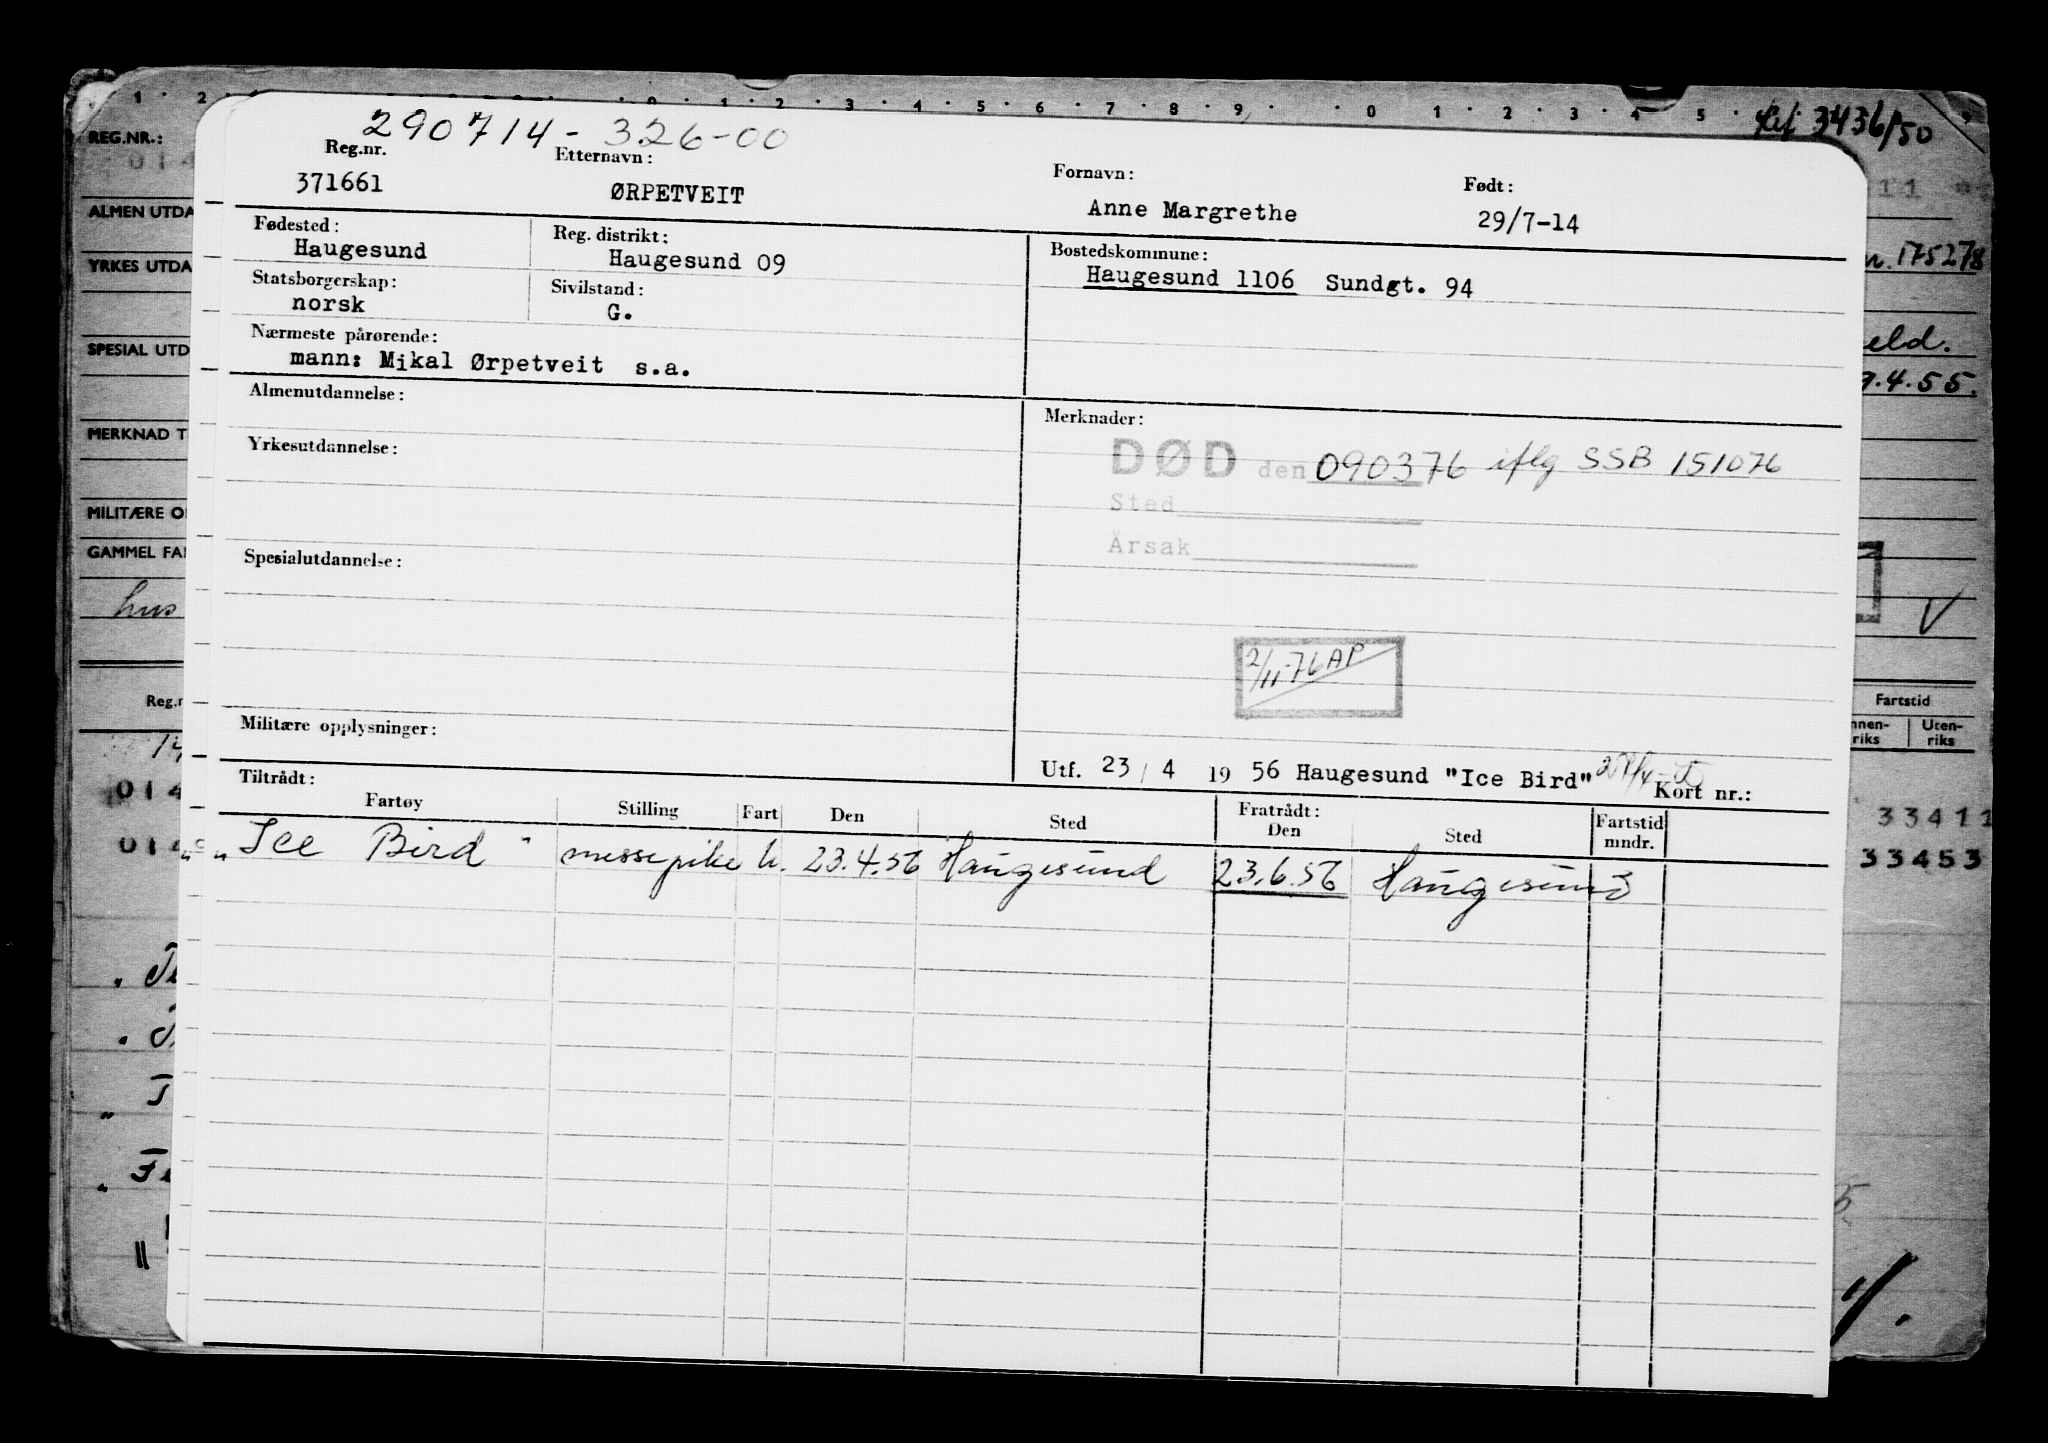 290714-326-00
Reg.nr. Etternavn: Fornavn: Født:
371661 ØRPETVEIT Anne Margrethe 29/7-14
Fødested: Reg. distrikt: Bostedskommune:
Haugesund Haugesund 09 Haugesund 1106 Sundgt. 94
Statsborgerskap: Sivilstand:
norsk G.
Nærmeste pårørende:
mann: Mikal Ørpetveit s.a.
Almenutdannelse: Merknader:
Yrkesutdannelse: DØD den 090376 iflg SSB 151076
Sted
Årsak
Spesialutdannelse:
2/11-76 AP
Militære opplysninger:
Utf. 23/4 1956 Haugesund "Ice Bird"
Kort nr.:
Tiltrådt: Fratrådt:
Fartøy Stilling Fart Den Sted Den Sted Fartstid mndr.
"Ice Bird" messepike u. 23.4.56 Haugesund 23.6.56 Haugesund
REG.NR.:
014
ALMEN UTDA
YRKES UTDA
SPESIAL UTD
MERKNAD T
MILITÆRE O
GAMMEL FA
hus
Reg.n
014
014
3436/50
11
175278
eld.
.4.55.
V
Fartstid
nnen-
riks
Uten-
riks
33411
33453
1 2 0 1 2 3 4 5 6 7 8 9 0 1 2 3 4 5